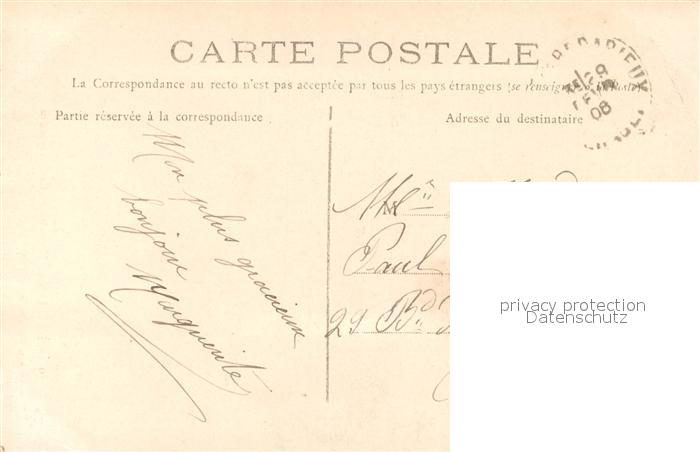 CARTE POSTALE
La Correspondance au recto n'est pas acceptée par tous les pays étrangers (se renseigner à la Poste)
Partie réservée à la correspondance
Adresse du destinataire
BEDARIEUX
29
08
HERAULT
Mon plus gracieux
bonjour
Marguerite
Mlle
Paul
29 Bd
privacy protection
Datenschutz